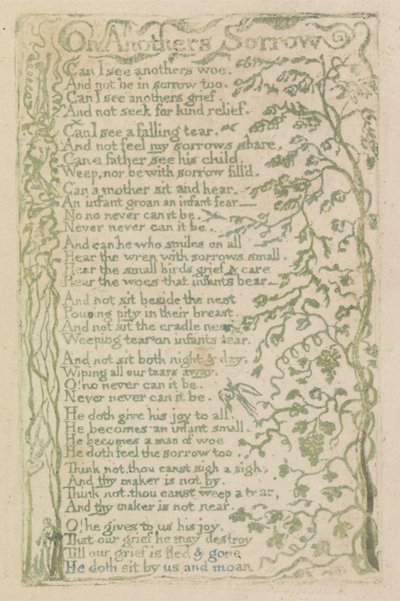 On Anothers Sorrow
Can I see anothers woe.
And not be in sorrow too.
Can I see anothers grief.
And not seek for kind relief.
Can I see a falling tear.
And not feel my sorrows share,
Can a father see his child,
Weep, nor be with sorrow fill'd.
Can a mother sit and hear
An infant groan an infant fear
No no never can it be.
Never never can it be.
And can he who smiles on all
Hear the wren with sorrows small
Hear the small birds grief & care
Hear the woes that infants bear
And not sit beside the nest
Pouring pity in their breast
And not sit the cradle near
Weeping tear on infants tear.
And not sit both night & day.
Wiping all our tears away.
O! no never can it be.
Never never can it be.
He doth give his joy to all.
He becomes an infant small
He becomes a man of woe
He doth feel the sorrow too
Think not, thou canst sigh a sigh,
And thy maker is not by.
Think not, thou canst weep a tear,
And thy maker is not near.
O! he gives to us his joy.
That our grief he may destroy
Till our grief is fled & gone
He doth sit by us and moan